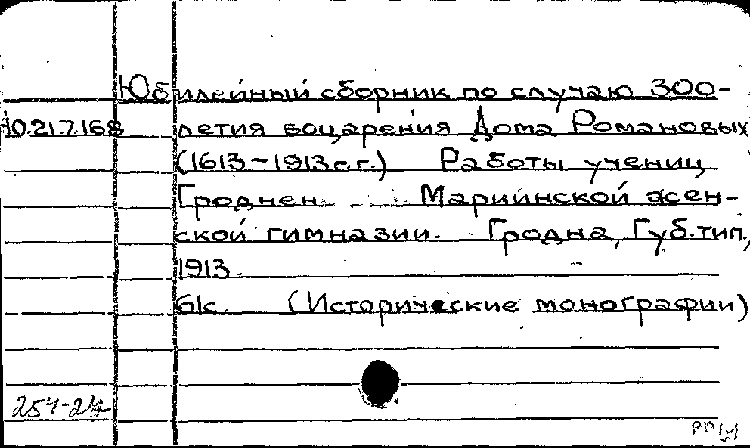 Юбилейный сборник по случаю 300-
10.21.7.168 летия воцарения Дома Романовых
(1613-1913г.г.) Работы учениц
Гроднен. Мариинской жен-
ской гимназии. Гродна, Губ.тип.,
1913.
61с. (Исторические монографии)
254-24